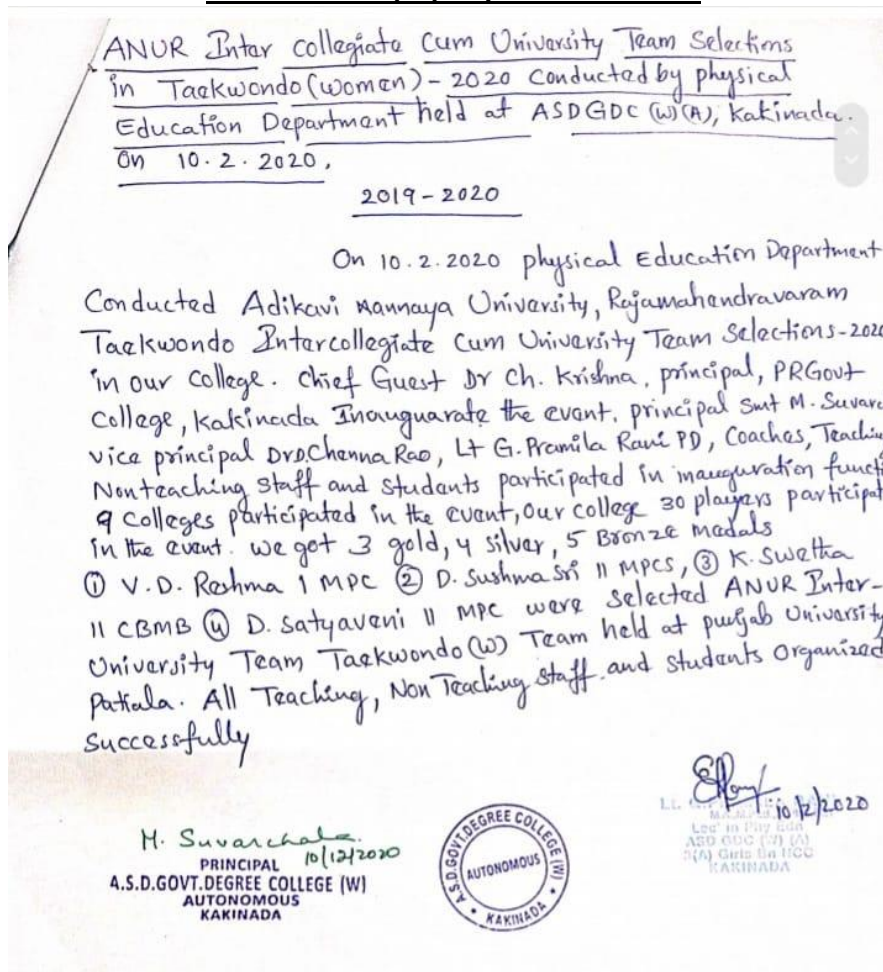 ANUR Inter collegiate Cum University Team Selections
in Taekwondo (women) - 2020 Conducted by physical
Education Department held at ASDGDC (W)(A), Kakinada.
On 10.2.2020,
2019-2020
On 10.2.2020 physical Education Department
Conducted Adikavi Nannaya University, Rajamahendravaram
Taekwondo Intercollegiate Cum University Team Selections-2020
in our College. Chief Guest Dr Ch. Krishna, principal, PRGovt
College, Kakinada Inauguarate the event. principal Smt M. Suvarc
vice principal Dr D. Channa Rao, Lt G. Pramila Rani PD, Coaches, Teachin
Nonteaching Staff and students participated in inauguration functi
9 Colleges participated in the event, Our college 30 players participat
in the event. we got 3 gold, 4 silver, 5 Bronze medals
① V.D. Reshma I MPC ② D. Sushma Sri II MPCS, ③ K. Swetha
II CBMB ④ D. Satyaveni II MPC were Selected ANUR Inter-
University Team Taekwondo (W) Team held at punjab University
Patiala. All Teaching, Non Teaching Staff and students Organized
Successfully
M. Suvarchala
10/12/2020
PRINCIPAL
A.S.D.GOVT.DEGREE COLLEGE (W)
AUTONOMOUS
KAKINADA
A.S.D.GOVT.DEGREE COLLEGE (W)
AUTONOMOUS
KAKINADA
10/2/2020
Lec' in Phy Edn
ASD GDC (W) (A)
3(A) Girls Bn NCC
KAKINADA